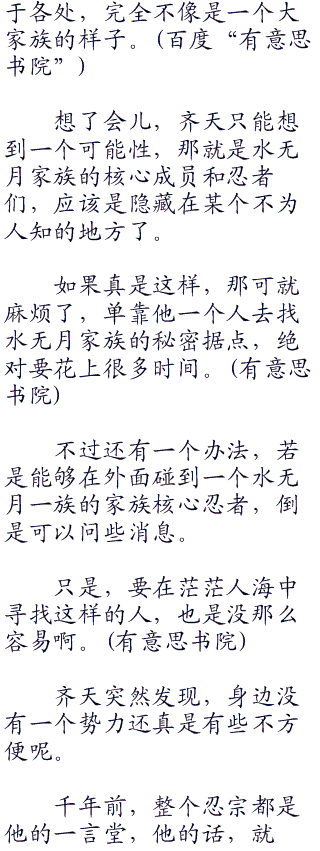 于各处，完全不像是一个大
家族的样子。(百度“有意思
书院”)
想了会儿，齐天只能想
到一个可能性，那就是水无
月家族的核心成员和忍者
们，应该是隐藏在某个不为
人知的地方了。
如果真是这样，那可就
麻烦了，单靠他一个人去找
水无月家族的秘密据点，绝
对要花上很多时间。(有意思
书院)
不过还有一个办法，若
是能够在外面碰到一个水无
月一族的家族核心忍者，倒
是可以问些消息。
只是，要在茫茫人海中
寻找这样的人，也是没那么
容易啊。(有意思书院)
齐天突然发现，身边没
有一个势力还真是有些不方
便呢。
千年前，整个忍宗都是
他的一言堂，他的话，就